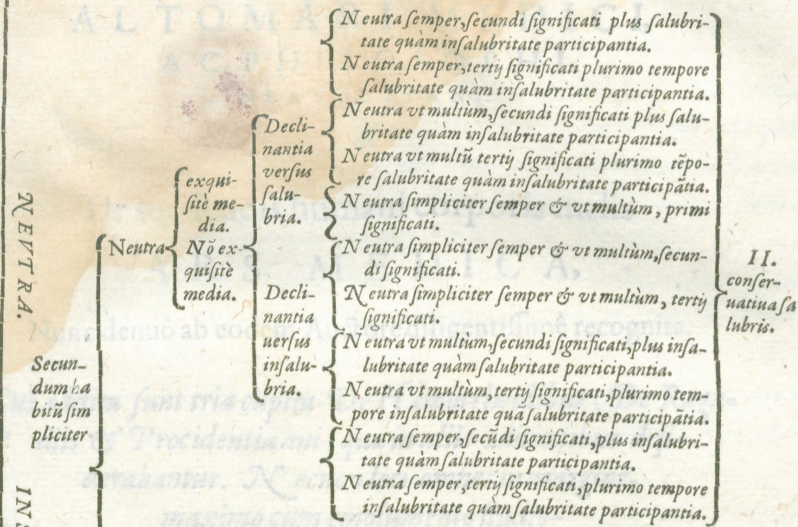 NEVTRA.
INS
Secun-
dum ha
bitũ sim
pliciter
Neutra
exqui-
sitè me-
dia.
Nõ ex-
quisitè
media.
Decli-
nantia
versus
salu-
bria.
Decli-
nantia
uersus
insalu-
bria.
Neutra semper, secundi significati plus salubri-
tate quàm insalubritate participantia.
Neutra semper, tertij significati plurimo tempore
salubritate quàm insalubritate participantia.
Neutra vt multùm, secundi significati plus salu-
britate quàm insalubritate participantia.
Neutra vt multũ tertij significati plurimo tẽpo-
re salubritate quàm insalubritate participãtia.
Neutra simpliciter semper & vt multùm, primi
significati.
Neutra simpliciter semper & vt multùm, secun-
di significati.
Neutra simpliciter semper & vt multùm, tertij
significati.
Neutra vt multùm, secundi significati, plus insa-
lubritate quàm salubritate participantia.
Neutra vt multùm, tertij significati, plurimo tem-
pore insalubritate quã salubritate participãtia.
Neutra semper, secũdi significati, plus insalubri-
tate quàm salubritate participantia.
Neutra semper, tertij significati, plurimo tempore
insalubritate quàm salubritate participantia.
II.
conser-
uatiua sa
lubris.